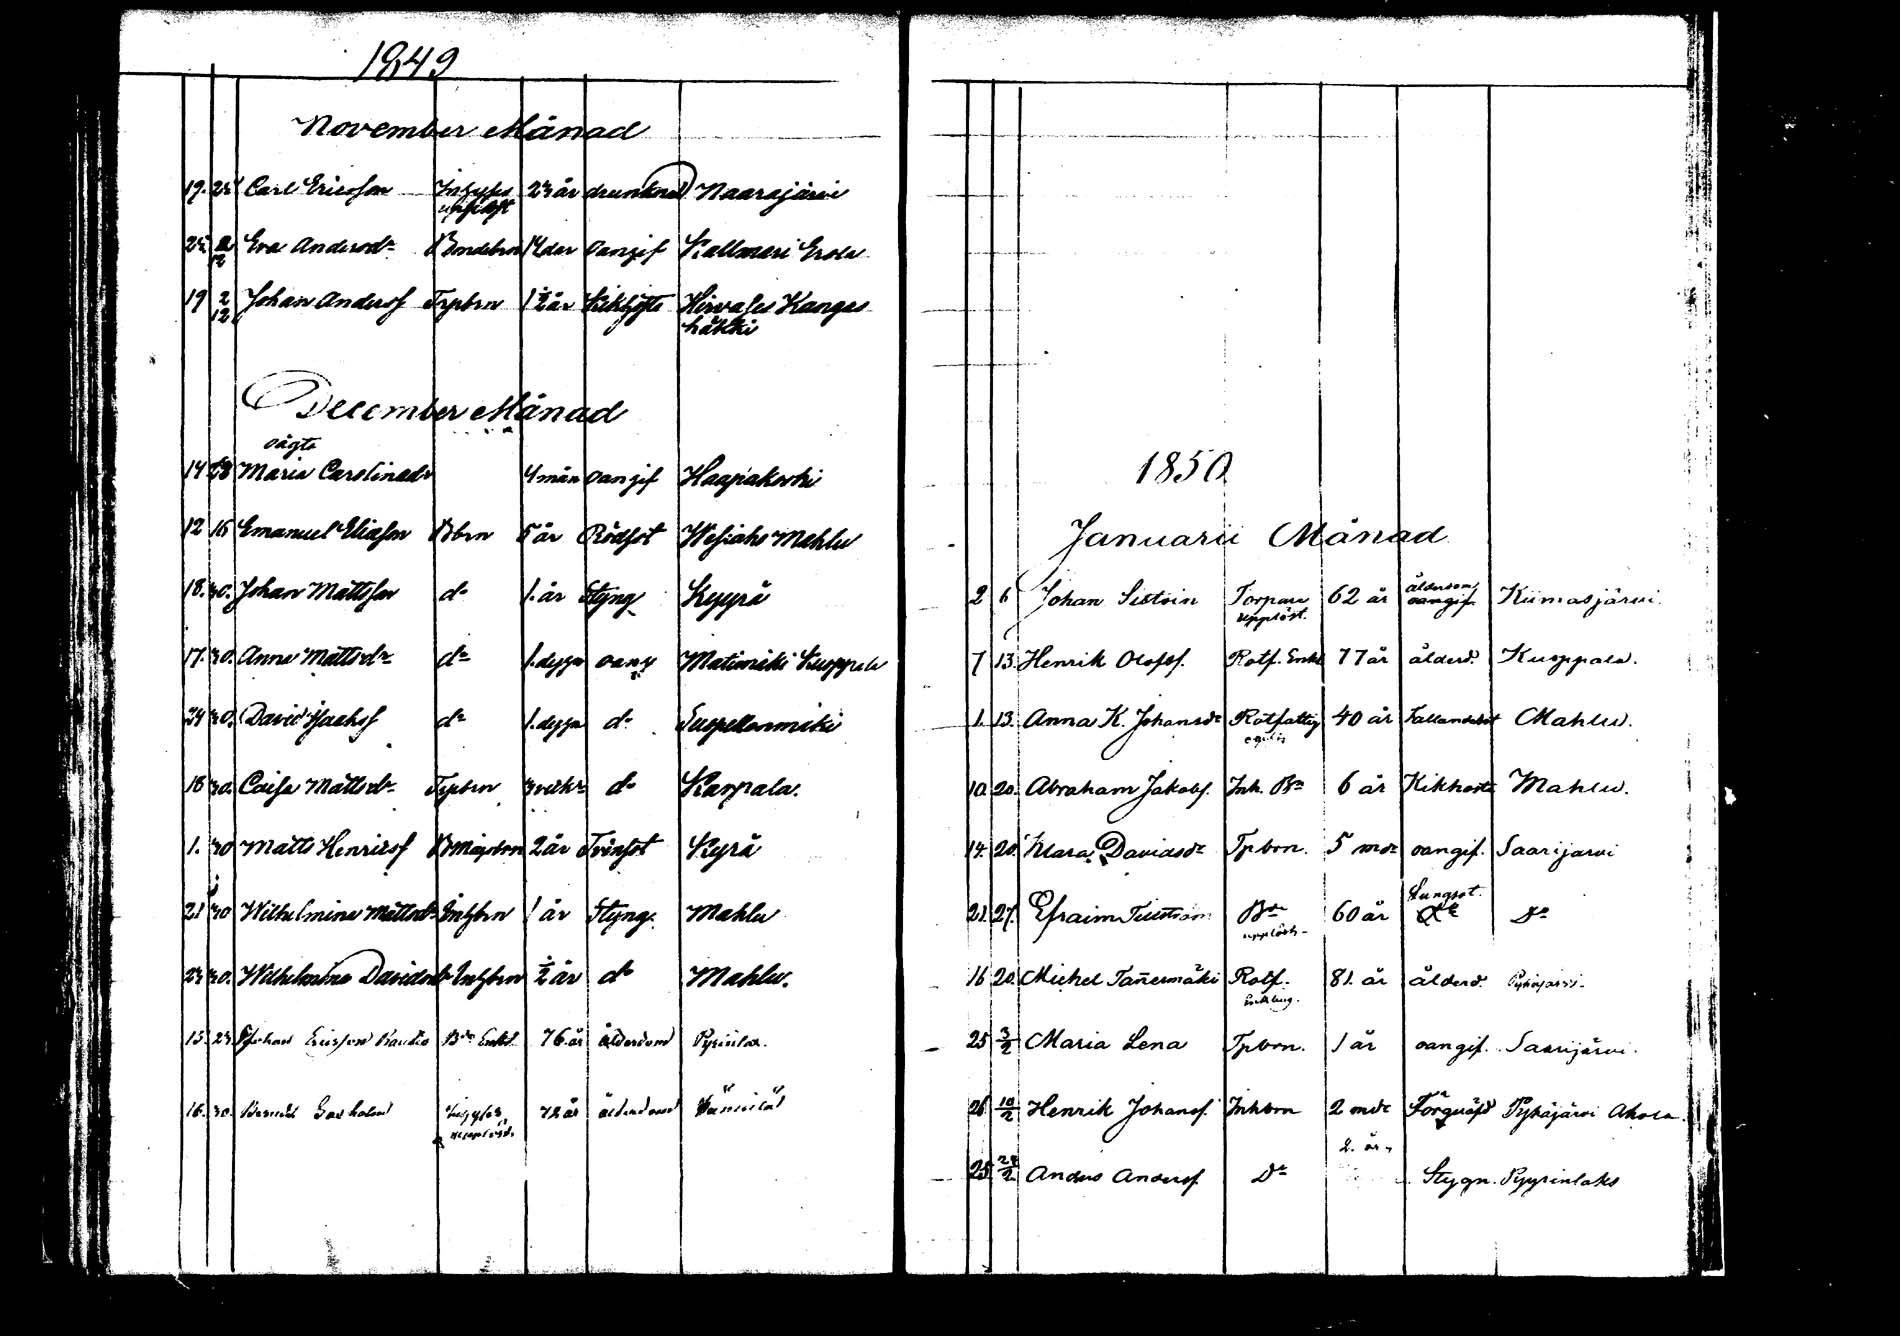 1849
November Månad
19. 25 Carl Ericsson Inhyses 23 år drunknad Naarajärvi
25 2/12 Eva Andersdr Bondebrn 14 dar oangif Kallmari Erola
19 2/12 Johan Andersf Trpbrn 1 1/2 år Kikhosta Hirvases Kangas
häkki
December Månad
oägta
14 28 Maria Carolinadr 4 mån oangif Haapakoski
12 16 Emanuel Eliasson Bbrn 5 år Rödsot Mahlu
18. 30. Johan Mattsson do 1. år Styng Kyyrä
17. 30. Anna Mattsdr do 1. dygn oang Matimäki Kuoppala
24 30. David Jacobsf do 1. dygn do
18 30. Caisa Mattsdr Trpbrn 3 vekr do Karpala.
1. 30 Matts Henricsf 2 år Tvinsot Kyrä
21 30 Wilhelmina Mattsdr Inhbrn 1 år Styng. Mahlu
23 30. Wilhelmina Davidsdr Inhbrn 1/2 år do Mahlu.
15. 23. Johan Ericsson Bde Enkl 76. år ålderdom
16. 30. 72 år ålderdom
1850
Januarii Månad
2 6 Johan Sistoin Torpare 62 år ålderdom oangif. Kiimasjärvi.
upplöst.
7 13. Henrik Olofsf. Rotf. Enkl 77 år ålderd. Kuoppala.
1. 13. Anna K. Johansdr Rotfattig 40 år Fallandesot Mahlu.
ogift
10. 20. Abraham Jakobsf. Inh. Bn 6 år Kikhosta Mahlu.
14. 20. Klara Davidsdr Tpbrn. 5 mdr oangif. Saarijärvi
Lungsot.
21. 27. Efraim 60 år Do
16 20. Michel Tañermäki Rotf. 81. år ålderd. Pyhäjärvi.
Enkling.
25 3/2 Maria Lena Tpbrn. 1 år oangif. Saarijärvi.
26 10/2 Henrik Johansf. Inhbrn 2 mdr Förqväfd Pyhäjärvi Ahola.
2. år.
25 24/2 Anders Andersf. Do Stygn. Pyyrinlaks